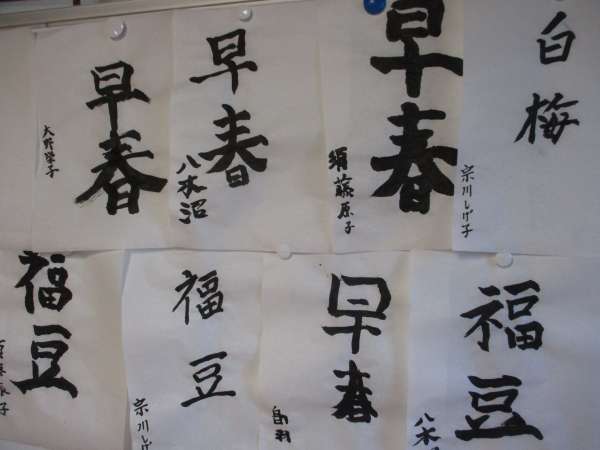 早春
大野栄子
早春
八木沼
早春
須藤原子
白梅
宗川しげ子
福豆
福豆
宗川しげ
早春
福豆
八木